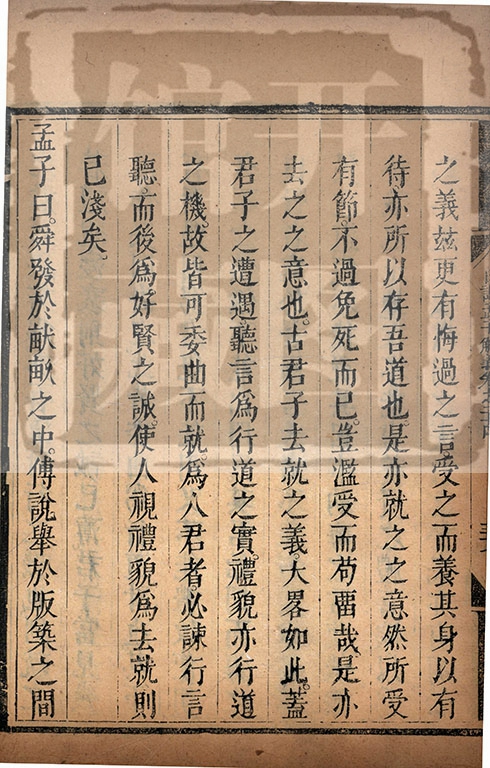 之義茲更有悔過之言受之而養其身以有
待亦所以存吾道也是亦就之之意然所受
有節不過免死而已豈濫受而苟畱哉是亦
去之之意也古君子去就之義大畧如此蓋
君子之遭遇聽言爲行道之實禮貌亦行道
之機故皆可委曲而就爲人君者必諫行言
聽而後爲好賢之誠使人視禮貌爲去就則
已淺矣
孟子曰舜發於畎畝之中傅說舉於版築之間